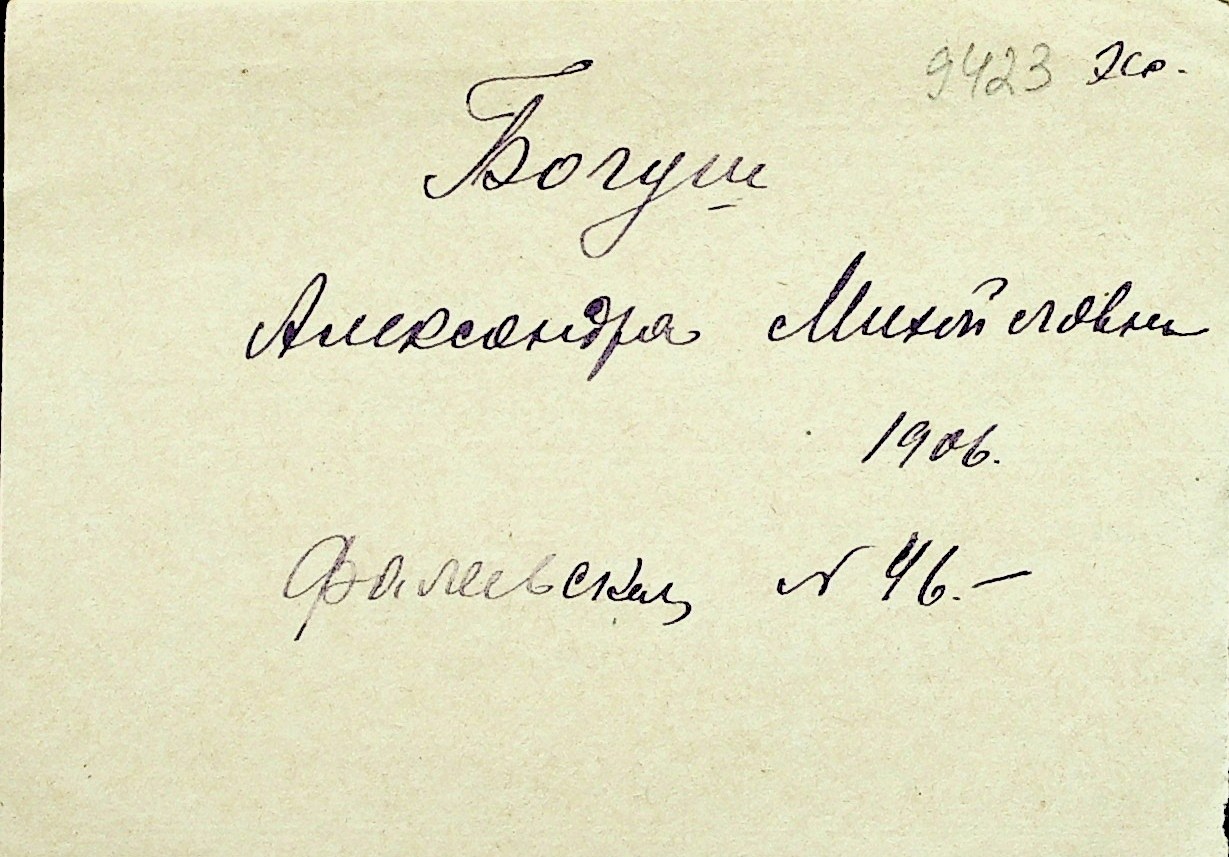 9423
Богуш
Александра Михайловна
1906.
Фалеевская N 46.-